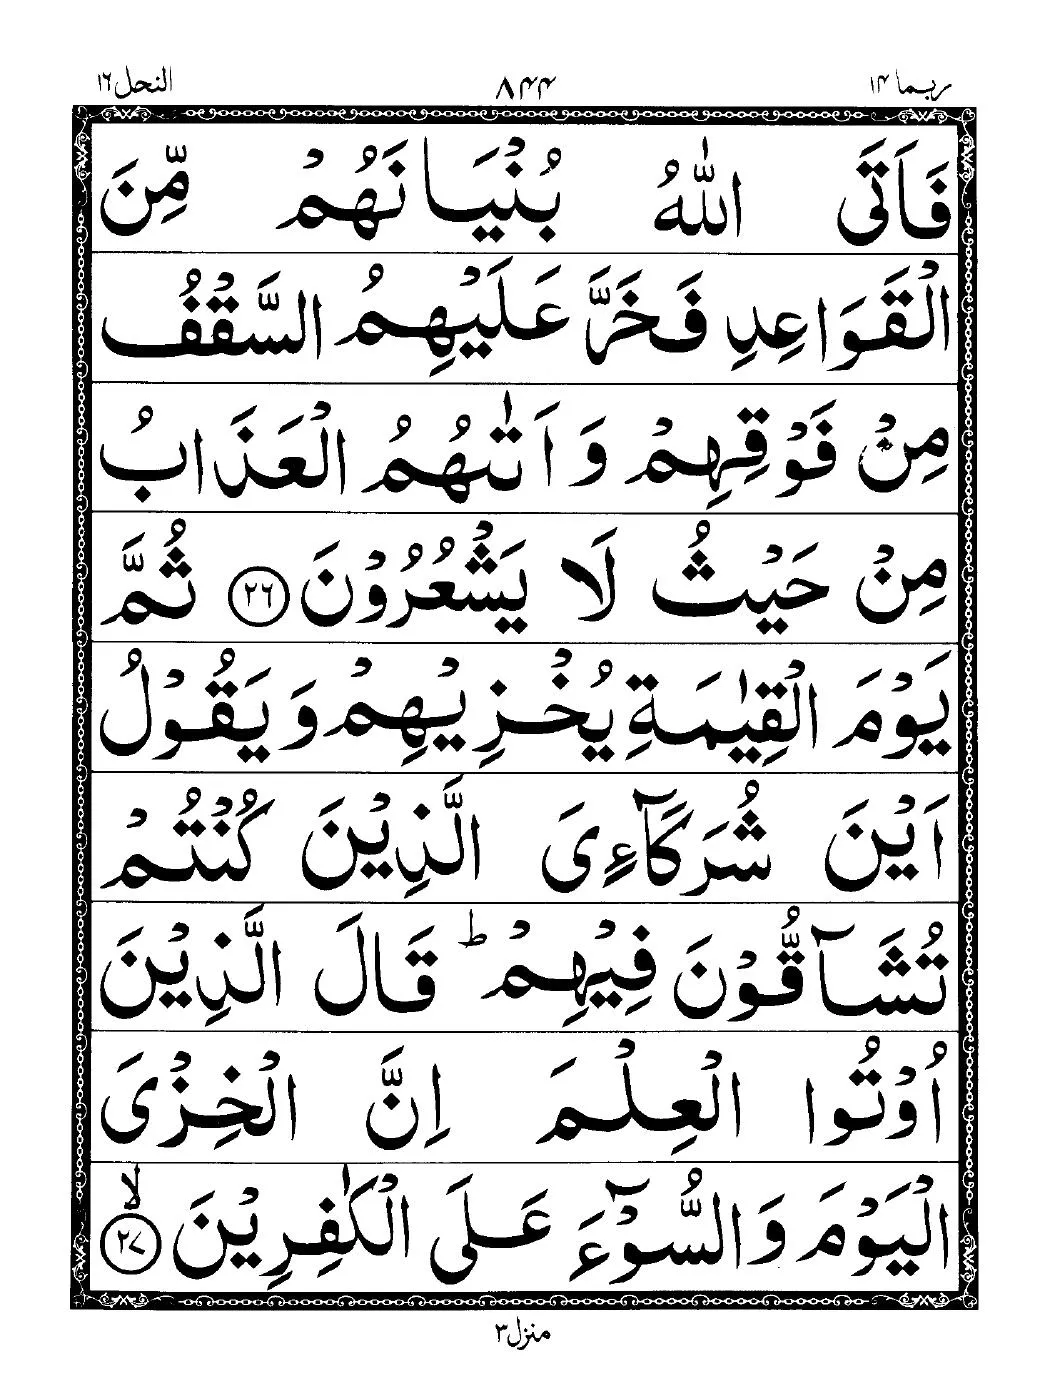 ربما ١۴ ٨۴۴ النحل ١٦
فَاَتَى اللّٰهُ بُنْيَانَهُمْ مِّنَ
الْقَوَاعِدِ فَخَرَّ عَلَيْهِمُ السَّقْفُ
مِنْ فَوْقِهِمْ وَاَتٰىهُمُ الْعَذَابُ
مِنْ حَيْثُ لَا يَشْعُرُوْنَ ٢٦ ثُمَّ
يَوْمَ الْقِيٰمَةِ يُخْزِيْهِمْ وَيَقُوْلُ
اَيْنَ شُرَكَآءِىَ الَّذِيْنَ كُنْتُمْ
تُشَآقُّوْنَ فِيْهِمْ ؕ قَالَ الَّذِيْنَ
اُوْتُوا الْعِلْمَ اِنَّ الْخِزْىَ
الْيَوْمَ وَالسُّوْٓءَ عَلَى الْكٰفِرِيْنَ ۙ ٢٧
منزل ٣